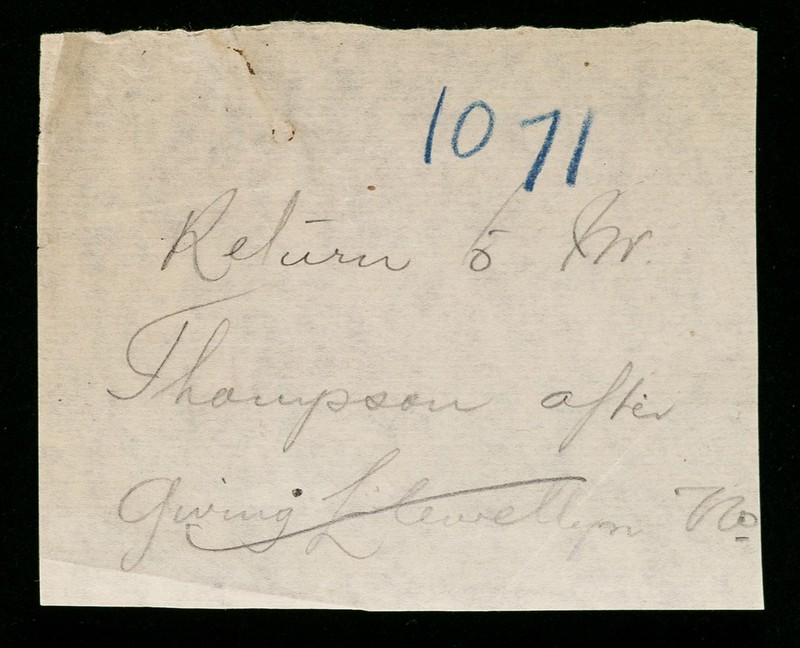 1071
Return to Mr.
Thompson after
giving Llewellyn No